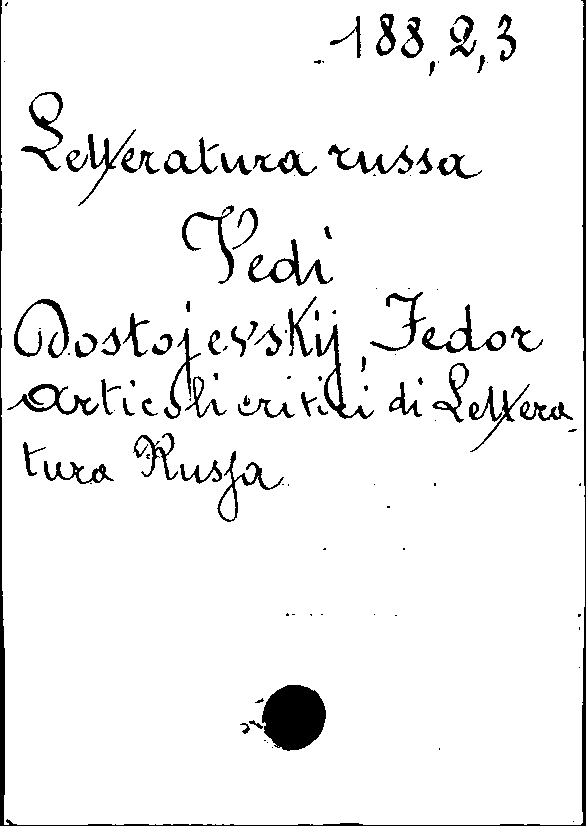 188,2,3
Letteratura russa
Vedi
Dostojevskij, Fedor
Articoli critici di Lettera-
tura Russa